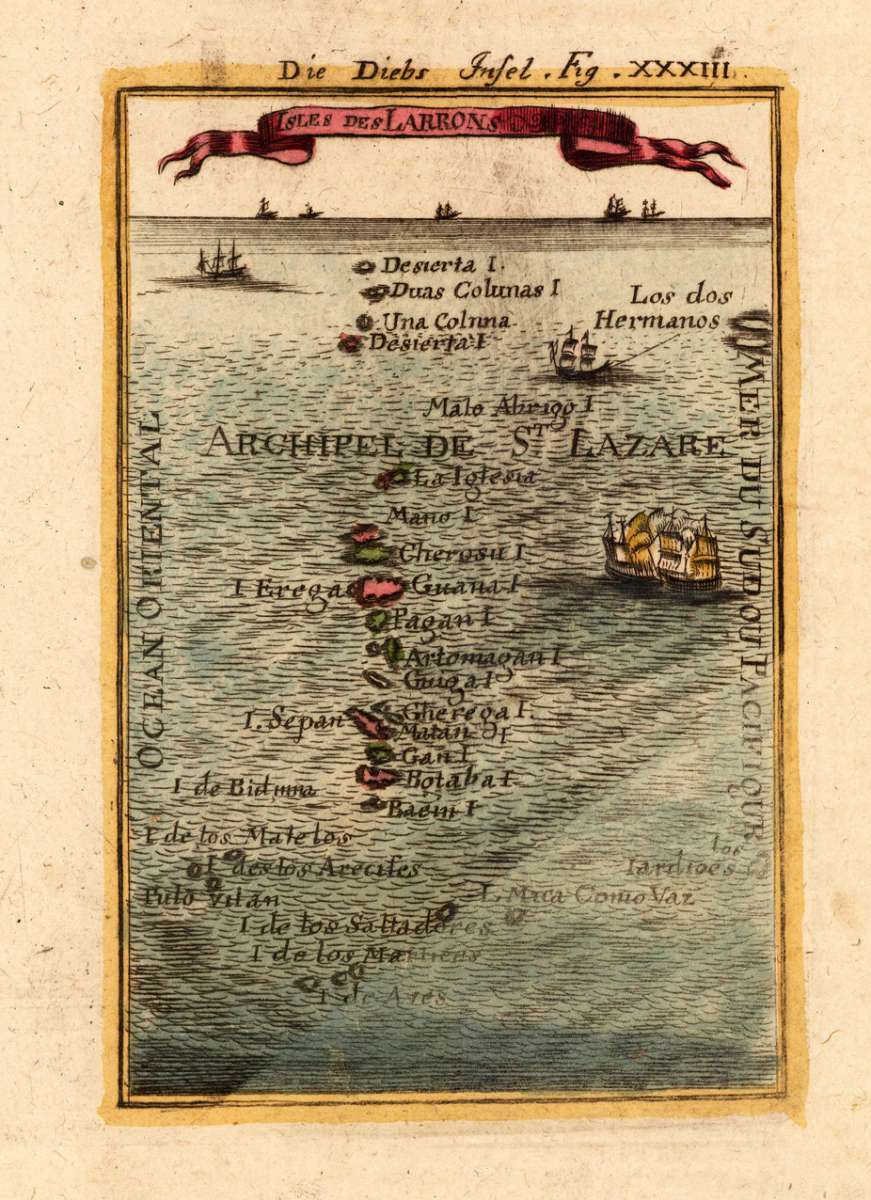 Die Diebs Insel. Fig. XXXIII.
ISLES DES LARRONS
Desierta I.
Duas Colunas I
Los dos
Hermanos
Una Colnna
Desierta I
Malo Abrigo I
ARCHIPEL DE ST LAZARE
La Iglesia
Mano I
Cherosu I
I Erega
Guana I
Pagan I
Artomagan I
Guiga I
Cherega I.
I. Sepan
Matan I
Gan I
Botaba I
I de Bidmna
Baein I
I de los Matelos
I des los Arecifes
los
Iardioes
Pulo Vilan
I. Mira Como Vaz
I de los Saltadores
I de los Martires
I de Ares
OCEAN ORIENTAL
MER DU SUD OU PACIFIQUE